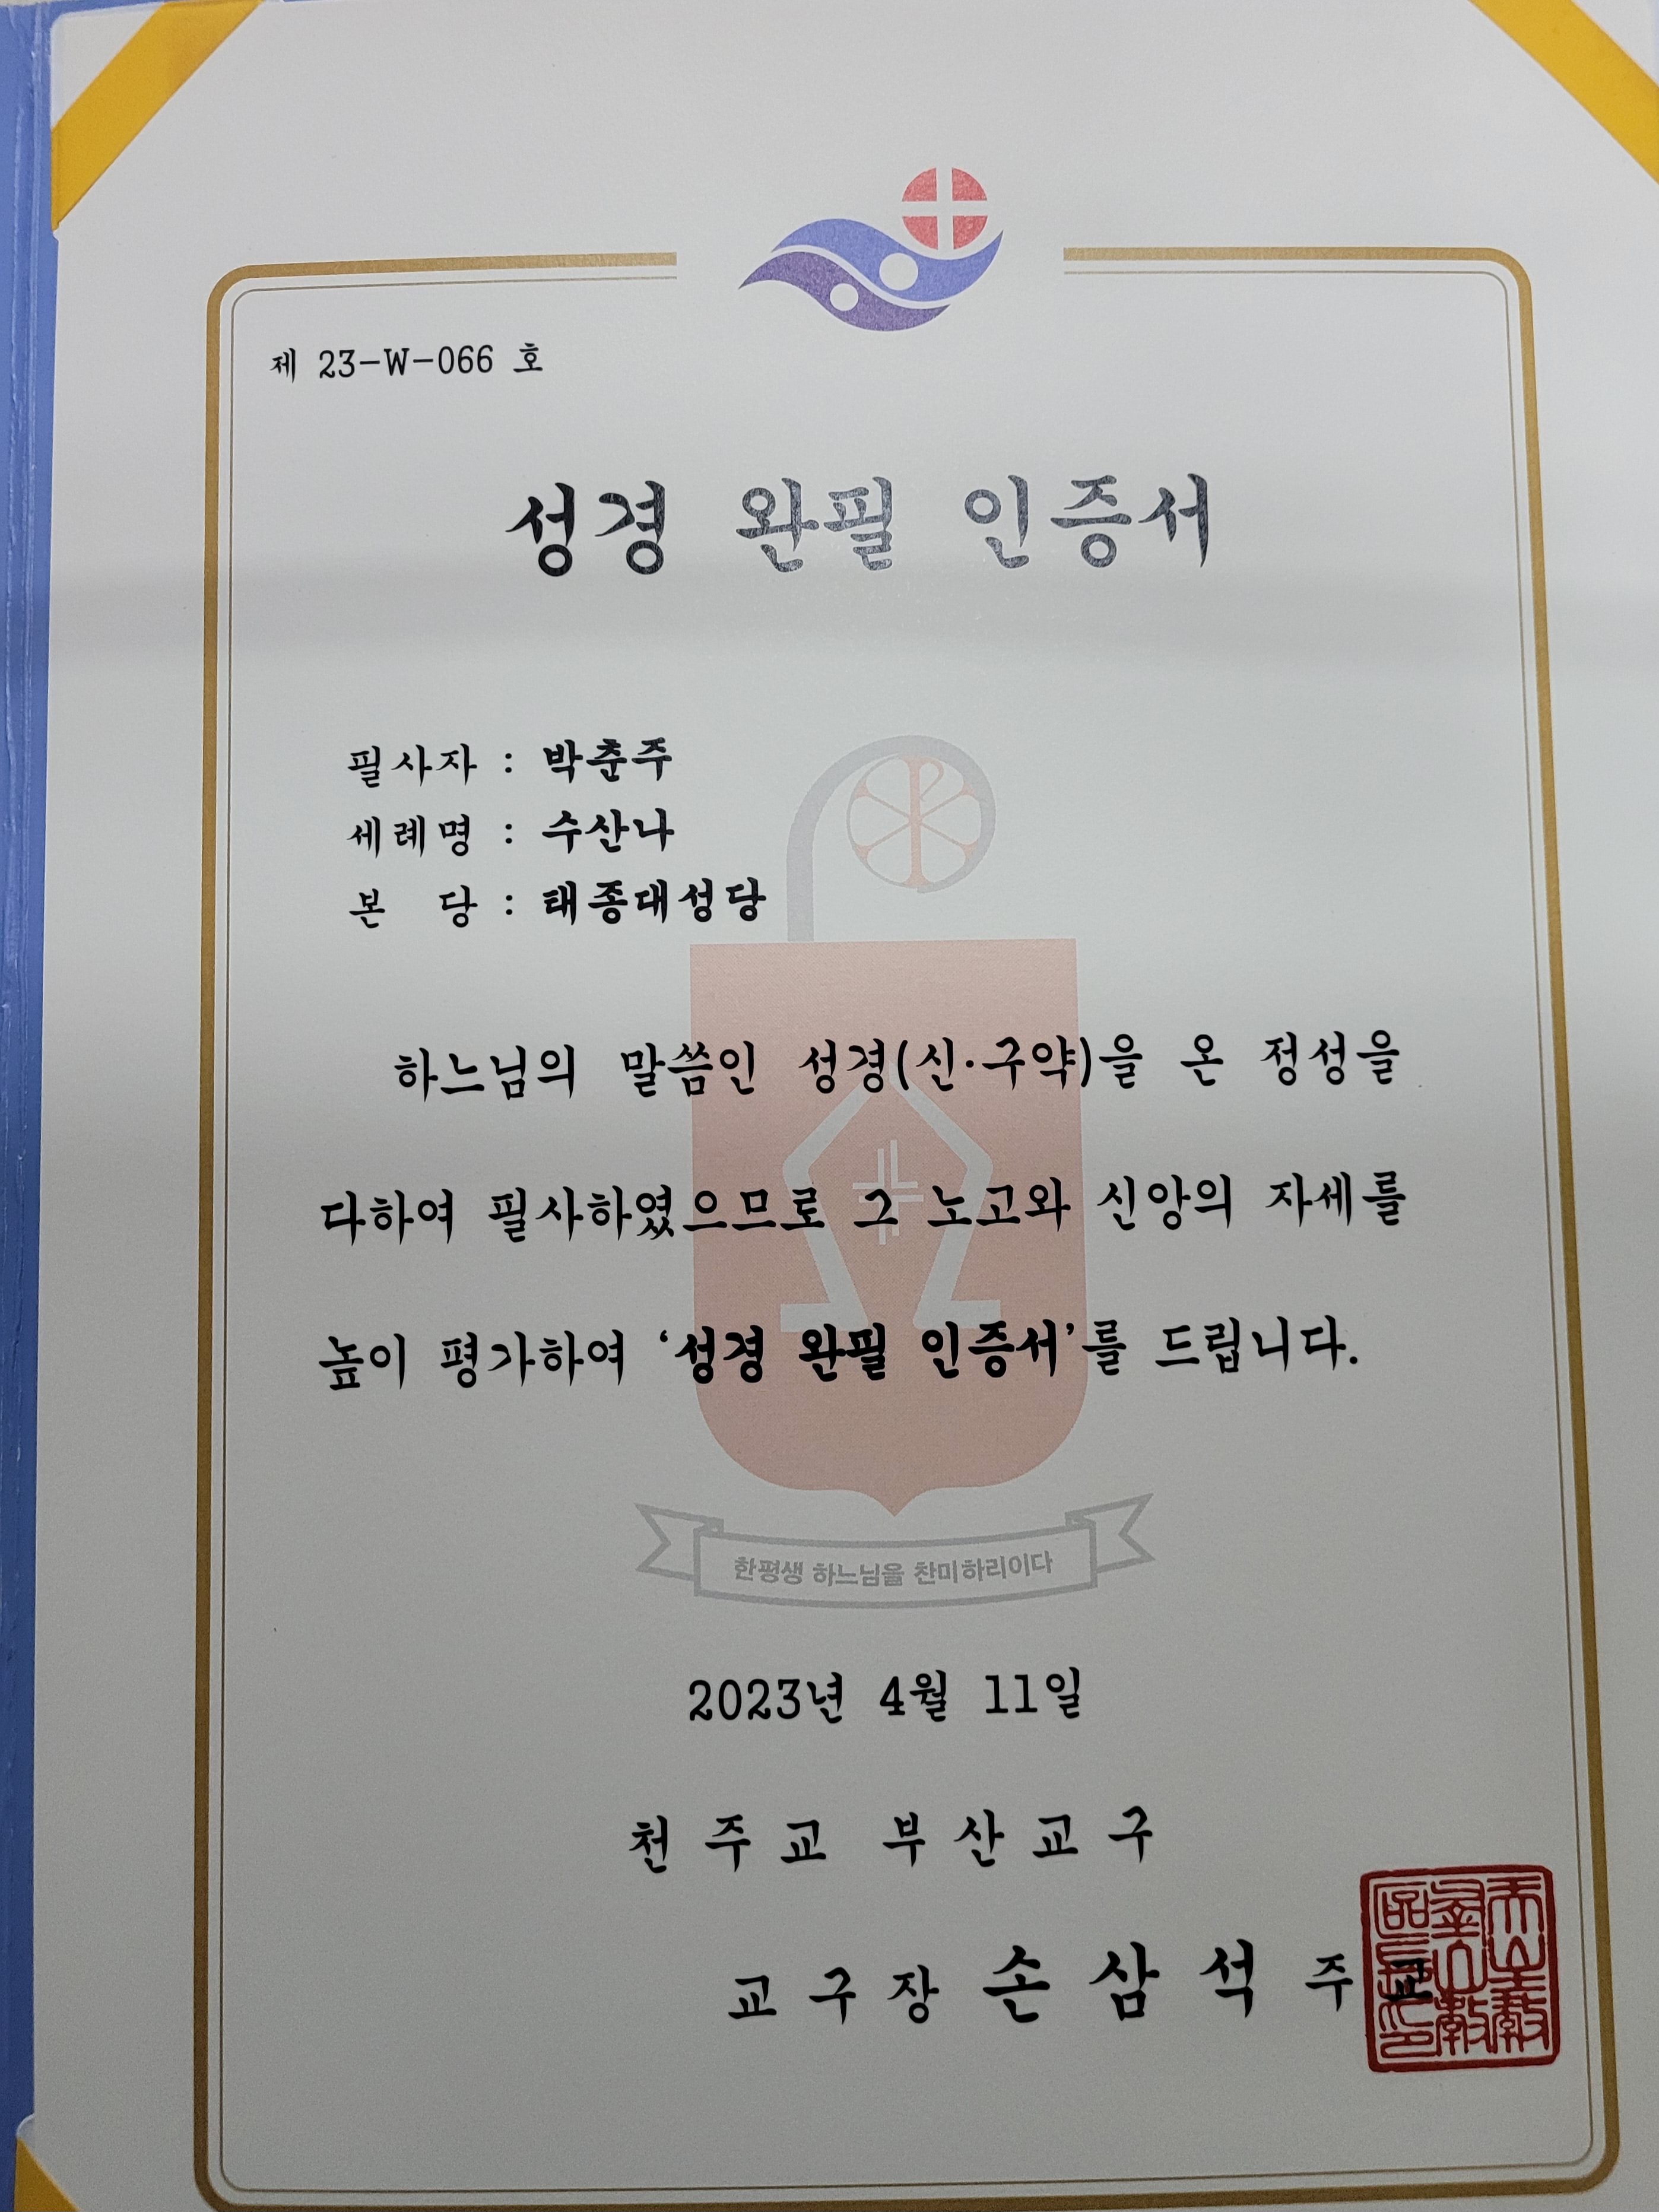 제 23-W-066 호
성경 완필 인증서
필사자 : 박춘주
세례명 : 수산나
본 당 : 태종대성당
하느님의 말씀인 성경(신·구약)을 온 정성을
다하여 필사하였으므로 그 노고와 신앙의 자세를
높이 평가하여 ‘성경 완필 인증서’를 드립니다.
한평생 하느님을 찬미하리이다
2023년 4월 11일
천 주 교 부 산 교 구
교 구 장 손 삼 석 주 교